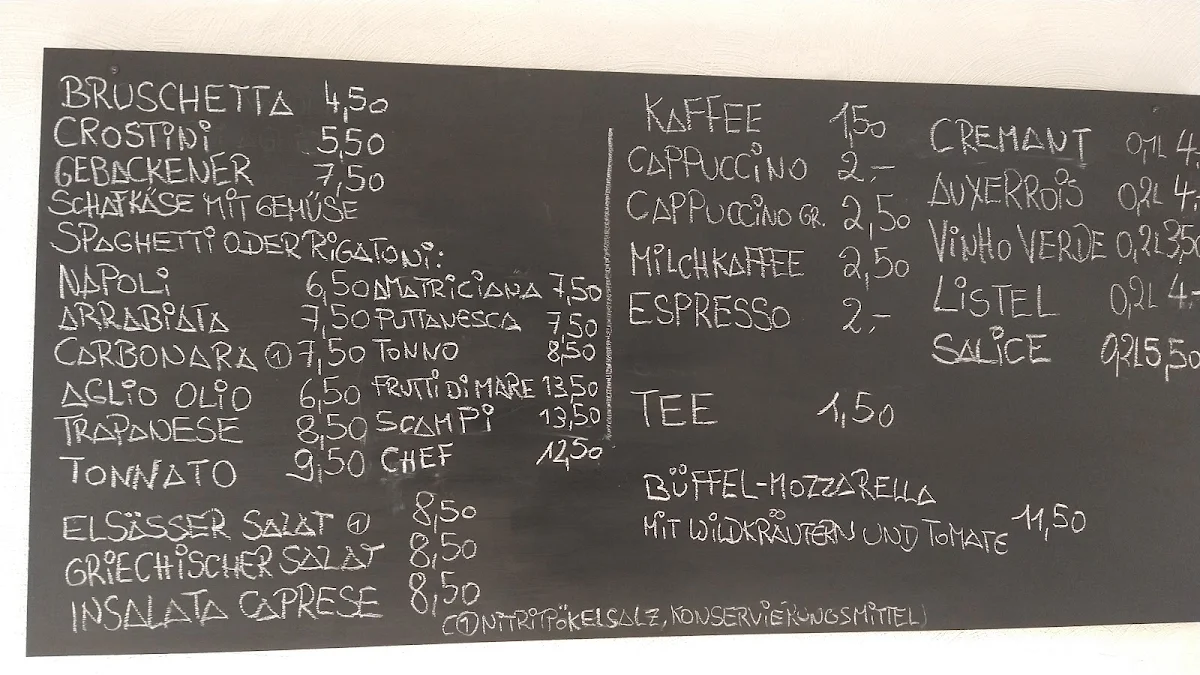 BRUSCHETTA 4,50
CROSTINI 5,50
GEBACKENER 7,50
SCHAFKÄSE MIT GEMÜSE
SPAGHETTI ODER RIGATONI:
NAPOLI 6,50 AMATRICIANA 7,50
ARRABIATA 7,50 PUTTANESCA 7,50
CARBONARA ① 7,50 TONNO 8,50
AGLIO OLIO 6,50 FRUTTI DI MARE 13,50
TRAPANESE 8,50 SCAMPI 13,50
TONNATO 9,50 CHEF 12,50
ELSÄSSER SALAT ① 8,50
GRIECHISCHER SALAT 8,50
INSALATA CAPRESE 8,50
KAFFEE 1,50
CAPPUCCINO 2,-
CAPPUCCINO GR. 2,50
MILCHKAFFEE 2,50
ESPRESSO 2,-
TEE 1,50
CREMANT 0,1L 4.
AUXERROIS 0,2L 4,
VINHO VERDE 0,2L 3,50
LISTEL 0,2L 4.
SALICE 0,2L 5,50
BÜFFEL-MOZZARELLA
MIT WILDKRÄUTERN UND TOMATE 11,50
(① NITRITPÖKELSALZ, KONSERVIERUNGSMITTEL)